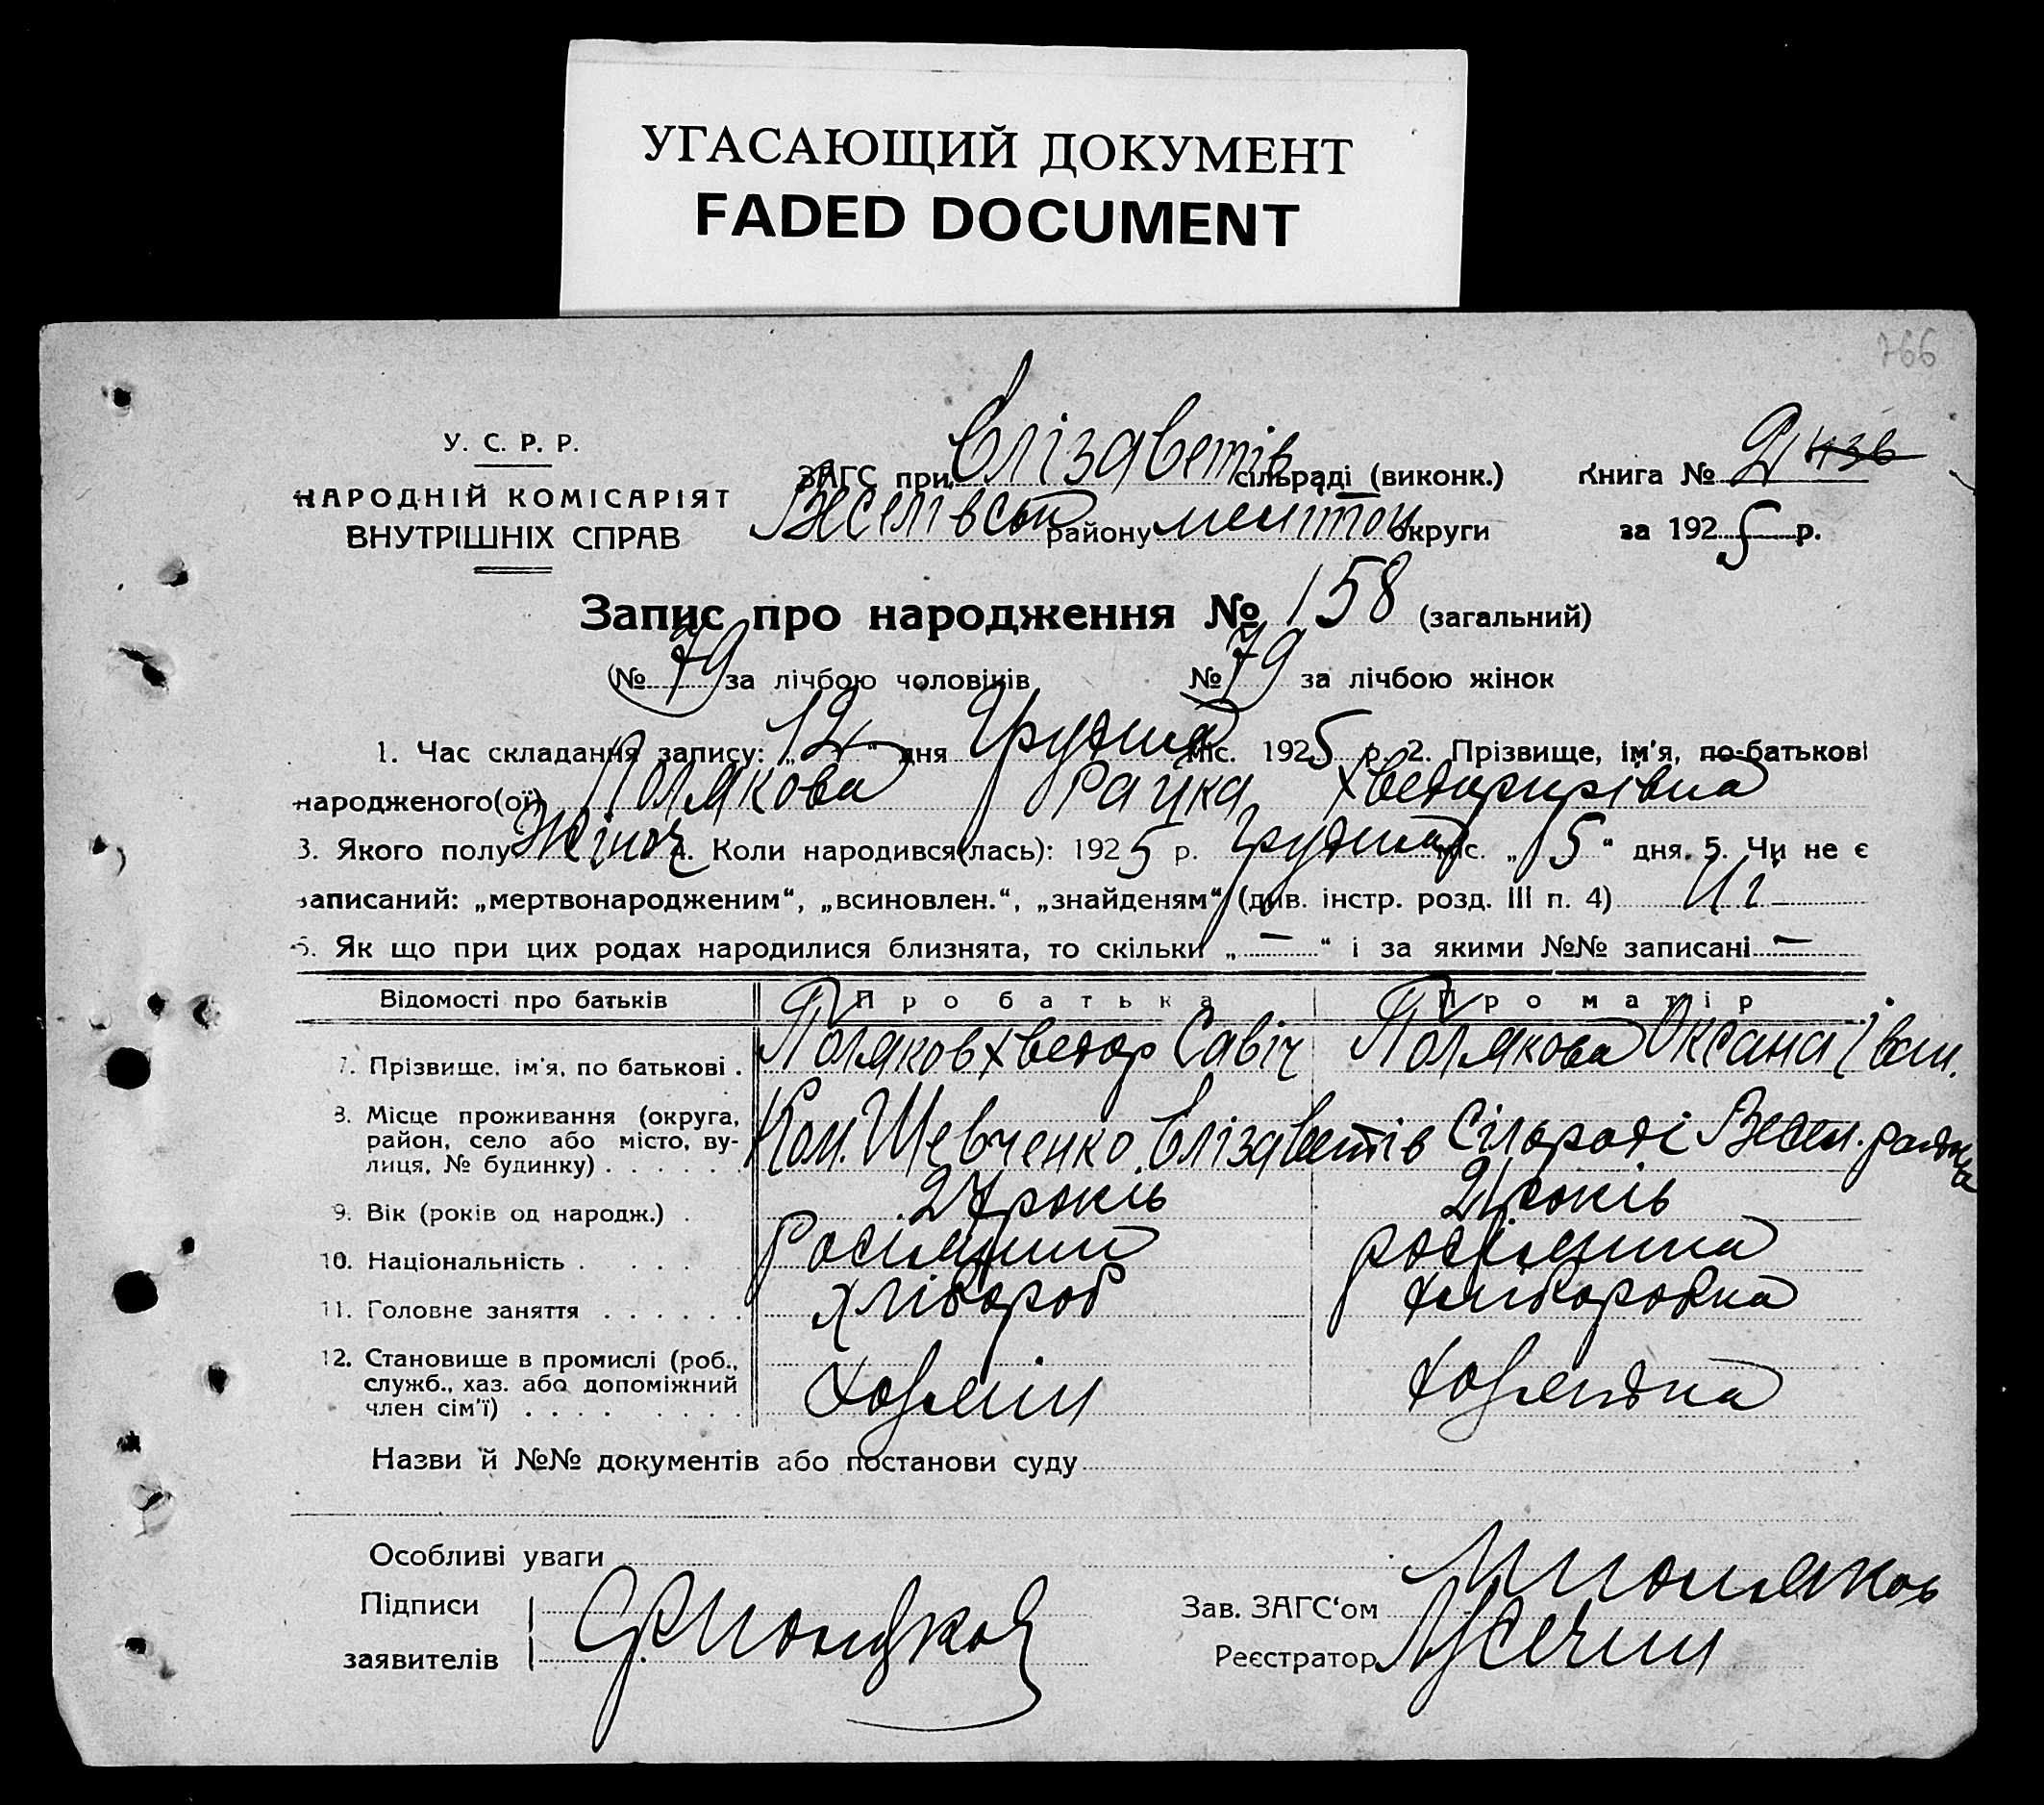 УГАСАЮЩИЙ ДОКУМЕНТ
FADED DOCUMENT
766
У. С. Р. Р.
НАРОДНІЙ КОМІСАРІЯТ
ВНУТРІШНІХ СПРАВ
ЗАГС при Єлізаветів сільраді (виконк.)
Веселівськ району меліто округи
Книга № 2
за 1925 р.
Запис про народження № 158 (загальний)
№ 79 за лічбою чоловіків № 79 за лічбою жінок
1. Час складання запису: „ 12 “ дня Грудня міс. 1925 р. 2. Прізвище, ім'я, по-батькові
народженого(ої) Полякова Раїка Хведорирівна
3. Якого полу Жіноч 4. Коли народився(лась): 1925 р. Грудня міс. „ 5 “ дня. 5. Чи не є
записаний: „мертвонародженим“, „всиновлен.“, „знайденям“ (див. інстр. розд. III п. 4) Ні
6. Як що при цих родах народилися близнята, то скільки „ — “ і за якими №№ записані —
Відомості про батьків Про батька Про матір
7. Прізвище, ім'я, по батькові . Поляков Хведор Савіч Полякова Оксана Іван.
8. Місце проживання (округа,
район, село або місто, ву-
лиця, № будинку) . . . . . . Кол. Шевченко Єлізаветів Сілораді Весел. району
9. Вік (років од народж.) . 27 років 21 років
10. Національність . . . . . Росіянин росіянина
11. Головне заняття . . . . . . хлібороб хліборобка
12. Становище в промислі (роб.,
служб., хаз. або допоміжний
член сім'ї) . . . . . . . . Хозяїн Хозяйка
Назви й №№ документів або постанови суду
Особливі уваги
Підписи
заявителів
Зав. ЗАГС‘ом Поляков
Реєстратор